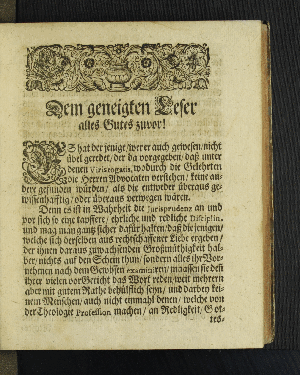 Dem geneigten Leser
alles Gutes zuvor!
ES hat der jenige/ wer er auch gewesen/ nicht
übel geredet/ der da vorgegeben/ daß unter
denen Virisrogatis, wodurch die Gelehrten
die Herren Advocaten verstehen/ keine an-
dere gefunden würden/ als die entweder überaus ge-
wissenhafftig/ oder überaus verwegen wären.
Denn es ist in Wahrheit die Jurisprudenz an und
vor sich eine tapffere/ ehrliche und redliche Disciplin,
und mag man gantz sicher dafür halten/ daß die jenigen/
welche sich derselben aus rechtschaffener Liebe ergeben/
der ihnen daraus zuwachsenden Großmüthigkeit hal-
ber/ nichts auf den Schein thun/ sondern alles ihr Vor-
nehmen nach dem Gewissen examiniren/ maassen sie deß
ihrer vielen vor Gericht das Wort reden/ weit mehrern
aber mit gutem Rathe behülfflich seyn/ und darbey kei-
nem Menschen/ auch nicht einmahl denen/ welche von
der Theologie Profession machen/ an Redligkeit/ Got-
tes-